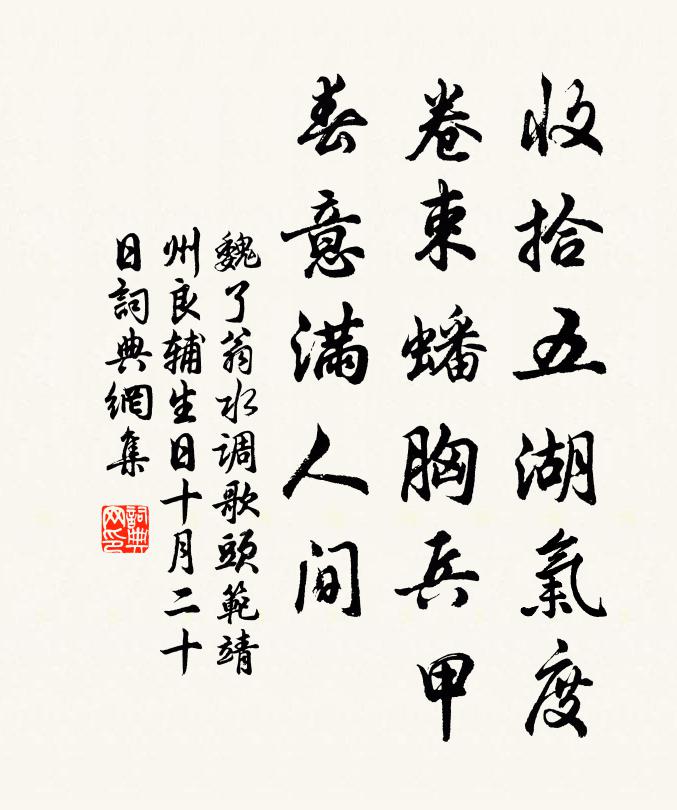 收拾五湖氣度
卷束蟠胸兵甲
春意滿人间
魏了翁水调歌頭範靖
州良辅生日十月二十
日詞典網集
詞典
网印